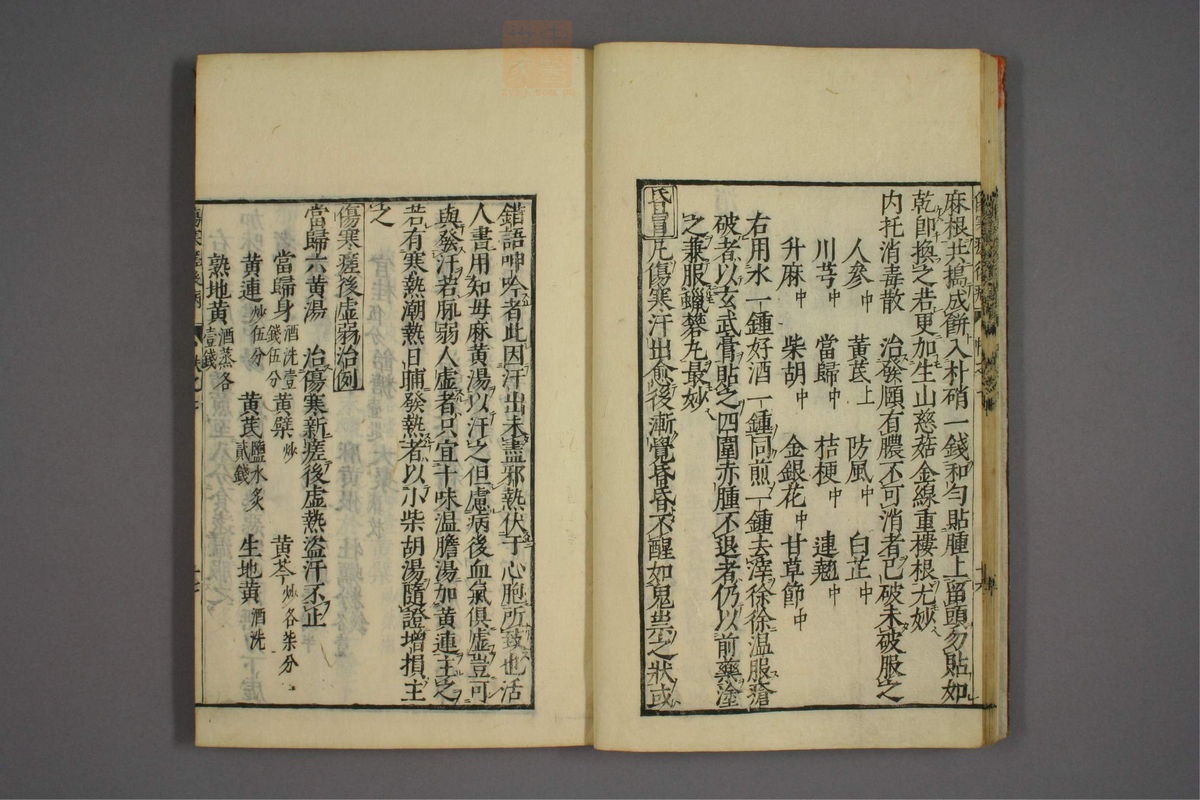 麻根共搗成餅入朴硝一錢和勻貼腫上留頭勿貼如
乾卽換之若更加生山慈菇金線重樓根尤妙
内托消毒散　治發頤有膿不可消者已破未破服之
人參中　黃芪上　防風中　白芷中
川芎中　當歸中　桔梗中　連翹中
升麻中　柴胡中　金銀花中　甘草節中
右用水一鍾好酒一鍾同煎一鍾去滓徐徐温服瘡
破者以玄武膏貼之四圍赤腫不退者仍以前藥塗
之兼服蠟礬丸最妙
昏冒凡傷寒汗出愈後漸覺昏昏不醒如鬼祟之狀或
錯語呻吟者此因汗出未盡邪熱伏于心胞所致也活
人書用知母麻黃湯以汗之但慮病後血氣俱虛豈可
與發汗若脈弱人虛者只宜十味温膽湯加黃連主之
若有寒熱潮熱日晡發熱者以小柴胡湯隨證增損主
之
傷寒瘥後虛弱治例
當歸六黃湯　治傷寒新瘥後虛熱盜汗不止
當歸身酒洗壹錢伍分　黃檗炒　黃芩炒各柒分
黃連炒伍分　黃芪鹽水炙貳錢　生地黃酒洗
熟地黃酒蒸各壹錢